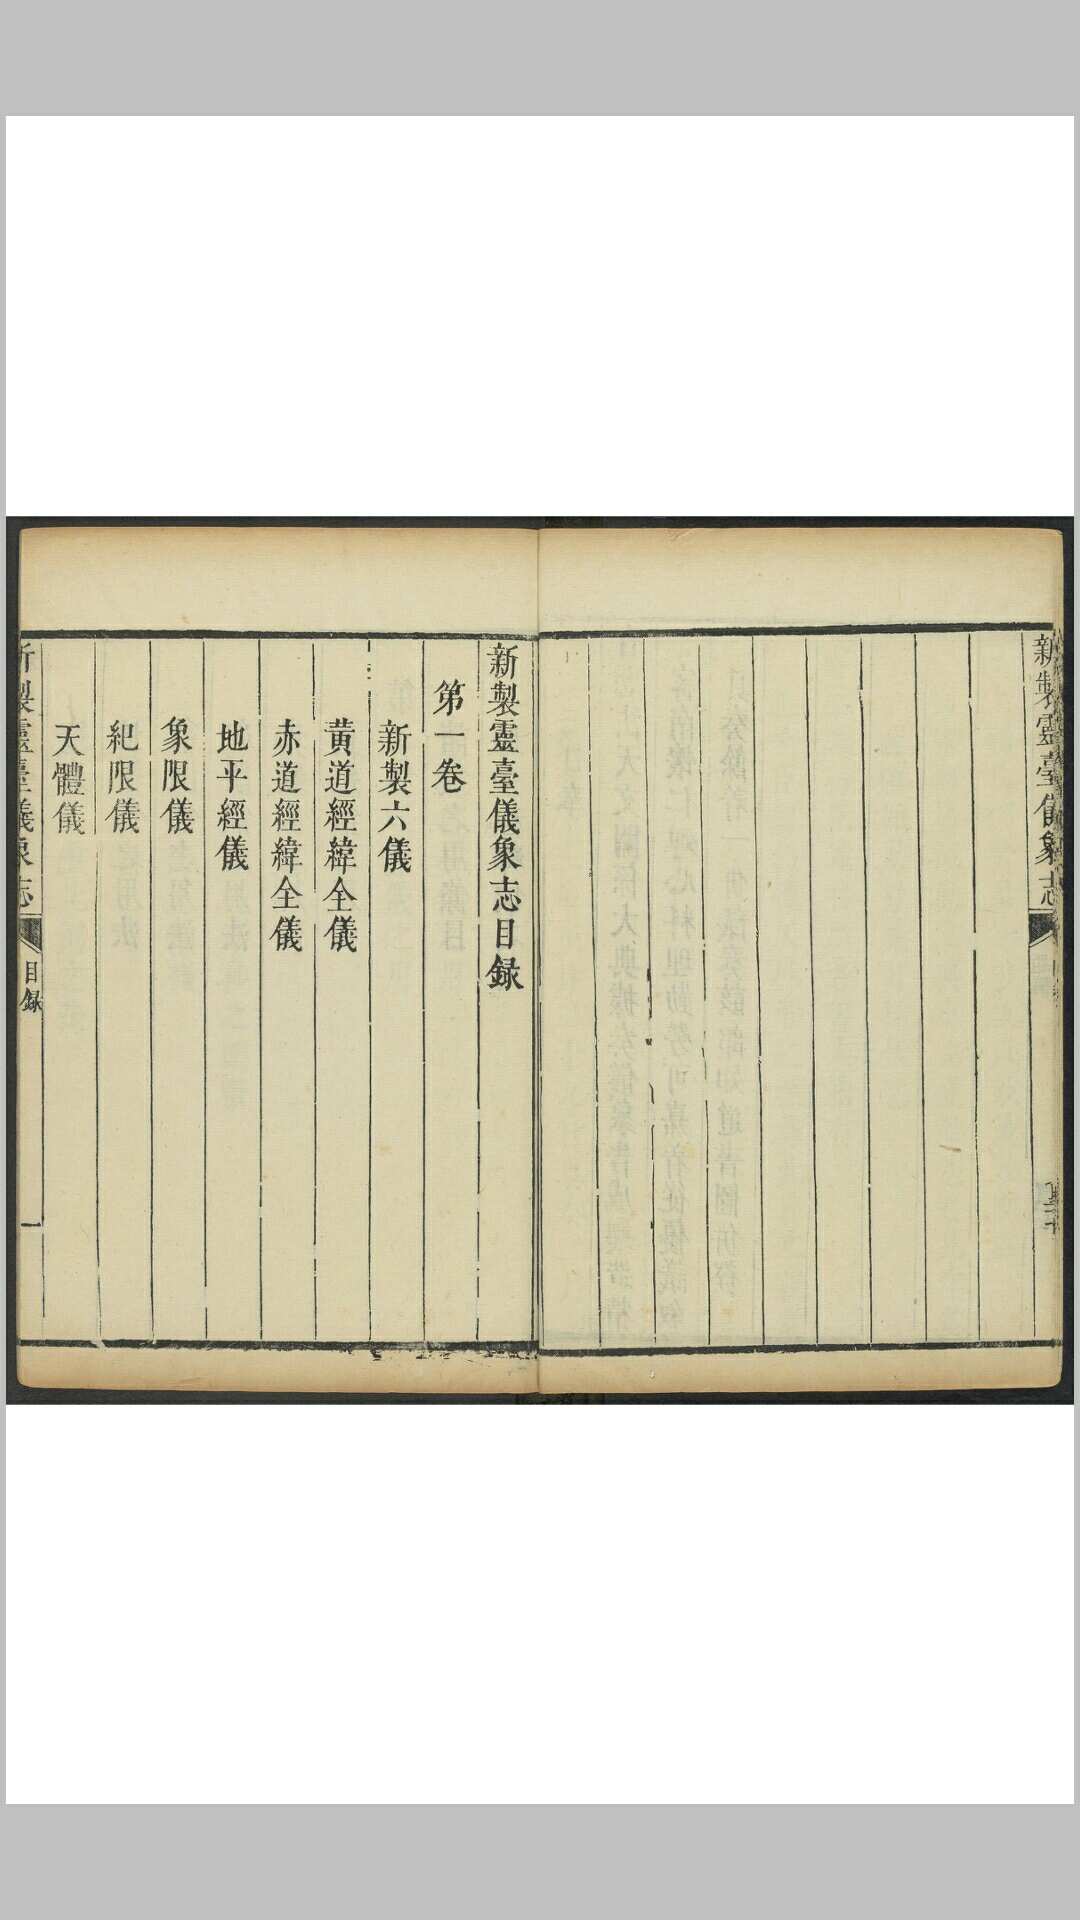 新製靈臺儀象志
新製靈臺儀象志目録
第一卷
新製六儀
黄道經緯全儀
赤道經緯全儀
地平經儀
象限儀
紀限儀
天體儀
新製靈臺儀象志
目録
一